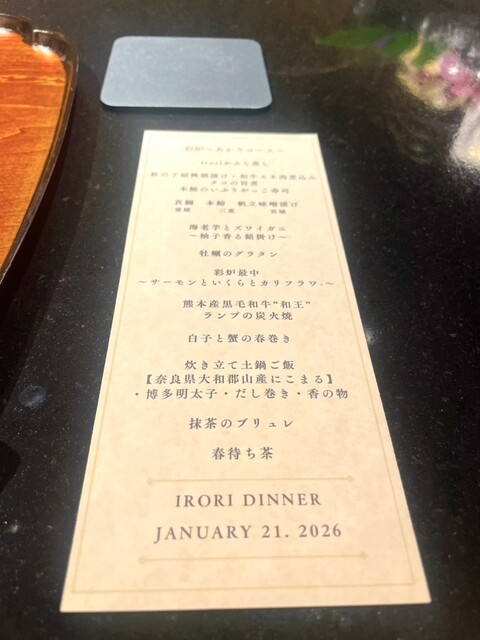 彩炉～あかりコース～
iroriかぶら蒸し
数の子紹興酒漬け・和牛スネ肉煮込み
タコの旨煮
本鮪のいぶりがっこ寿司
真鯛 本鮪 帆立味噌漬け
愛媛 三重 宮城
海老芋とズワイガニ
～柚子香る餡掛け～
牡蠣のグラタン
彩炉最中
～サーモンといくらとカリフラワ-～
熊本産黒毛和牛“和王”
ランプの炭火焼
白子と蟹の春巻き
炊き立て土鍋ご飯
【奈良県大和郡山産にこまる】
・博多明太子・だし巻き・香の物
抹茶のブリュレ
春待ち茶
IRORI DINNER
JANUARY 21. 2026